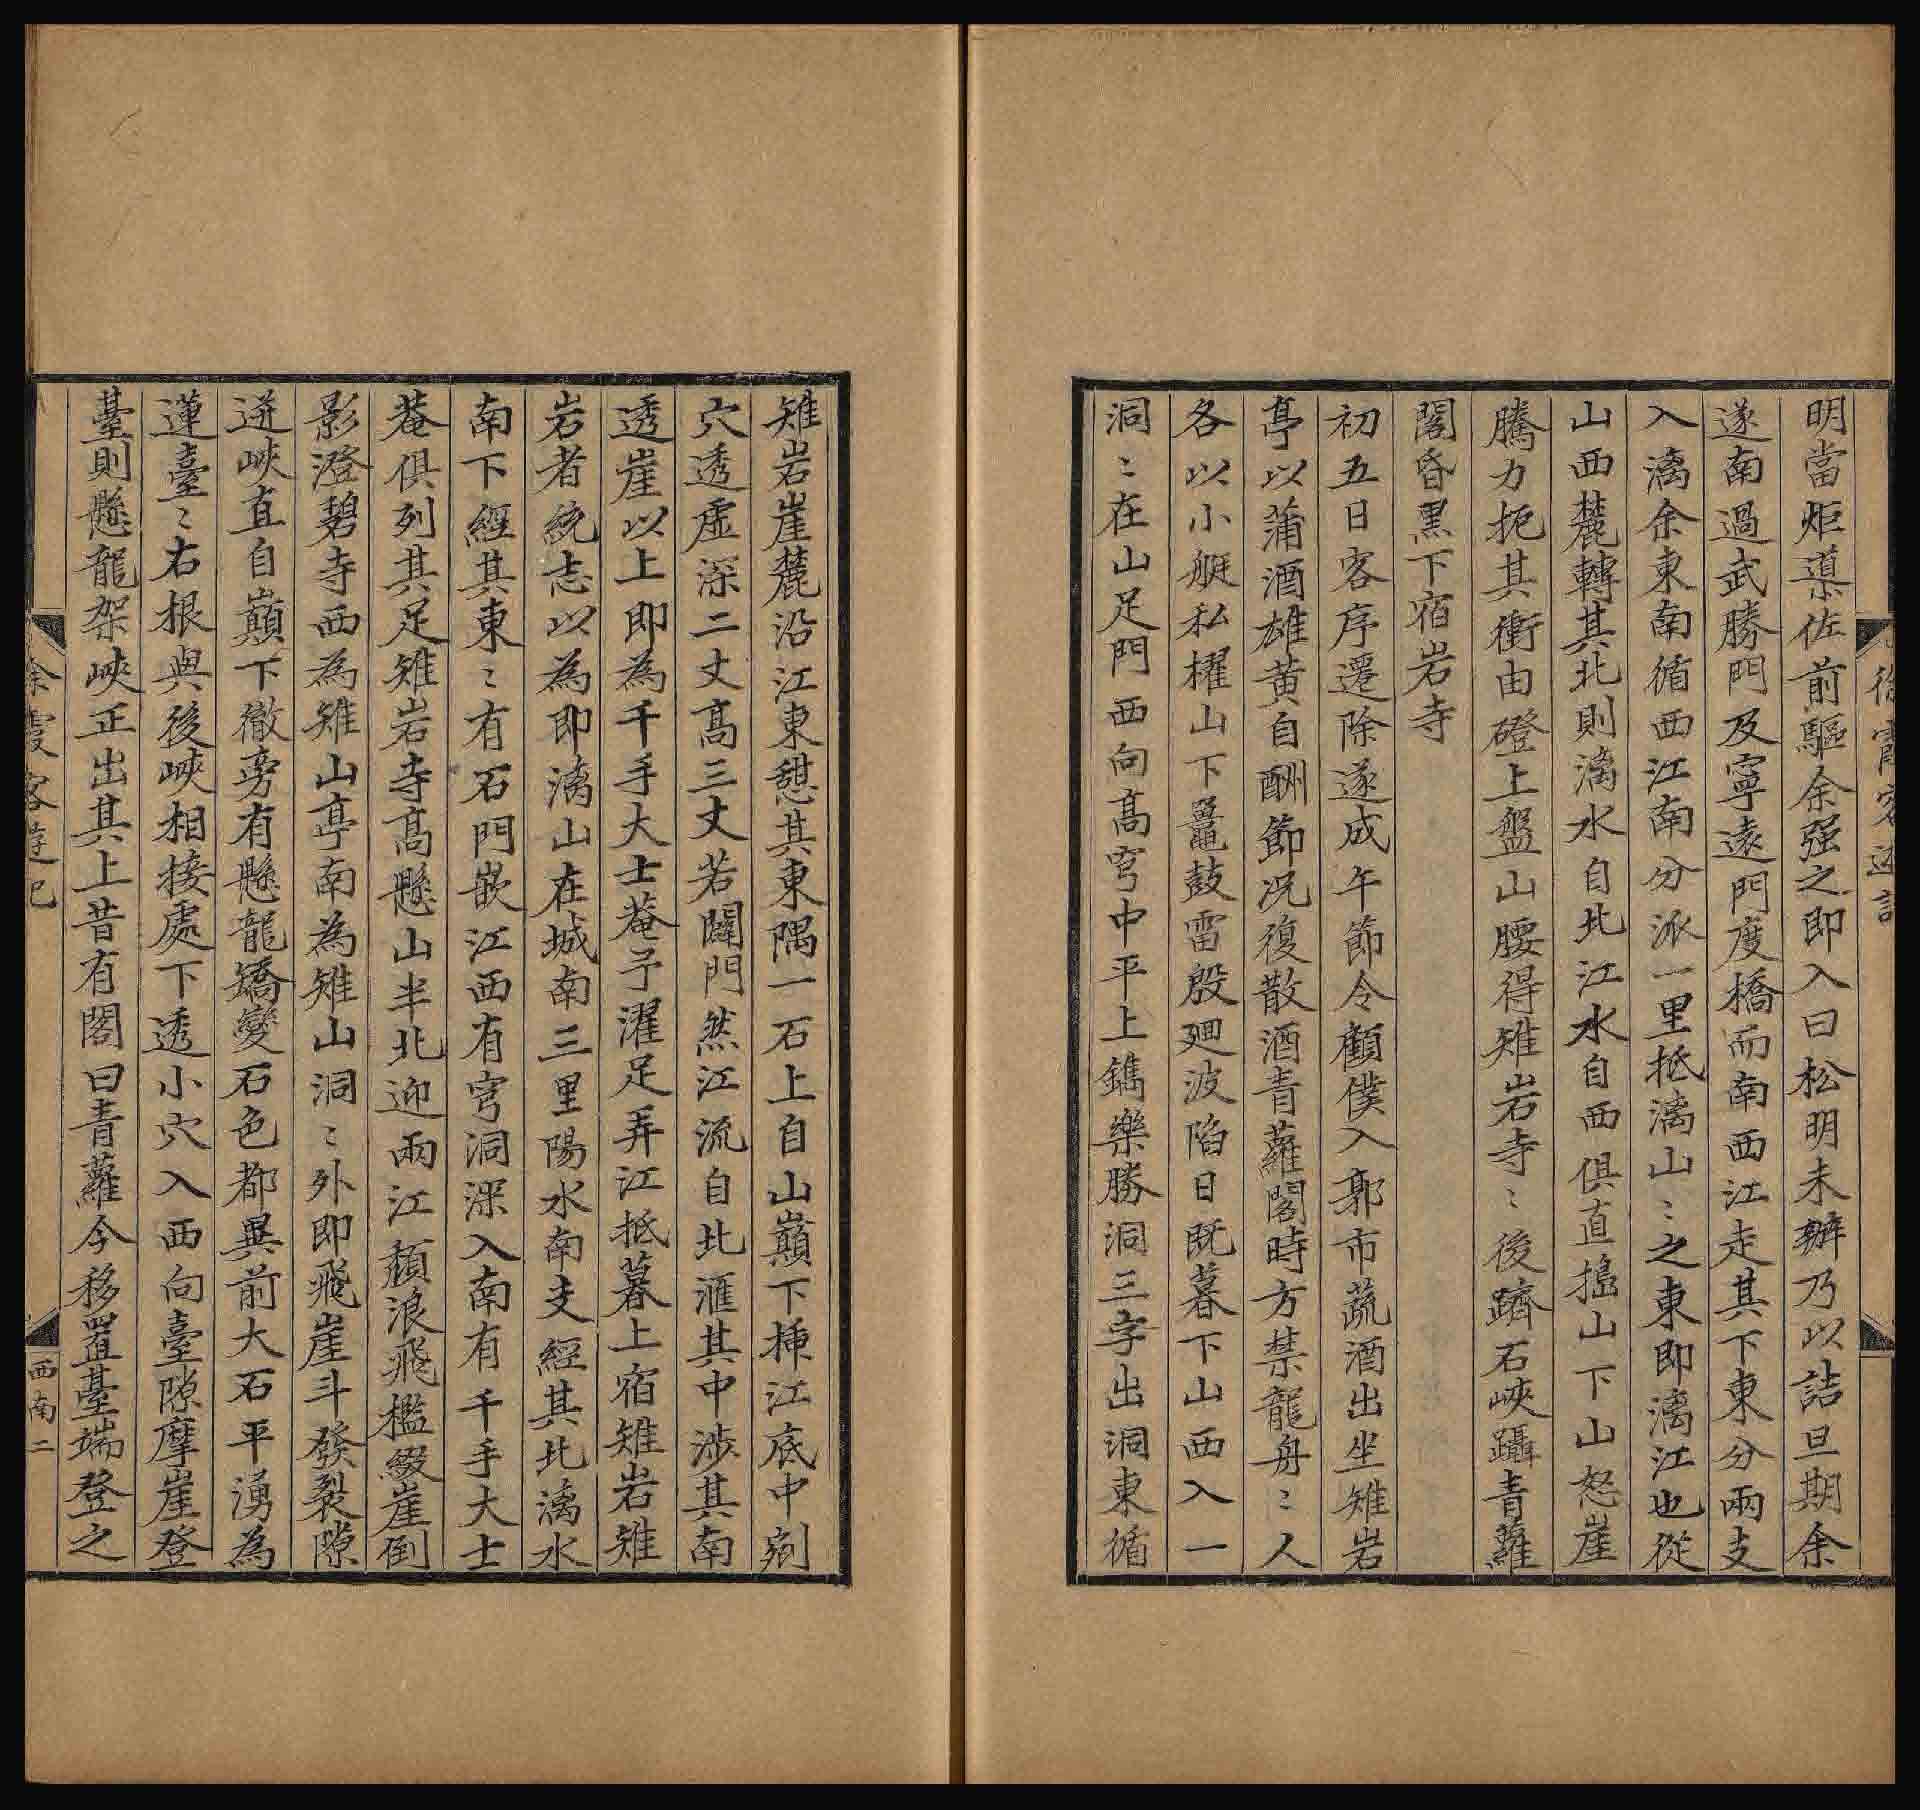 徐霞客遊記
明當炬導佐前驅余强之即入曰松明未辦乃以詰旦期余
遂南過武勝門及寧遠門度橋而南西江走其下東分兩支
入漓余東南循西江南分派一里抵漓山〻之東即漓江也從
山西麓轉其北則漓水自北江水自西俱直搗山下山怒崖
騰力扼其衝由磴上盤山腰得雉岩寺〻後躋石峽躡青蘿
閣昏黑下宿岩寺
初五日客序遷除遂成午節令顧僕入郭市蔬酒出坐雉岩
亭以蒲酒雄黄自酬節况復散酒青蘿閣時方禁龍舟〻人
各以小艇私櫂山下鼉鼓雷殷廻波陷日既暮下山西入一
洞〻在山足門西向高穹中平上鐫樂勝洞三字出洞東循
雉岩崖麓沿江東憩其東隅一石上自山巔下揷江底中剜
穴透虛深二丈高三丈若闢門然江流自北滙其中涉其南
透崖以上即為千手大士菴予濯足弄江抵暮上宿雉岩雉
岩者統志以為即漓山在城南三里陽水南支經其北漓水
南下經其東〻有石門嵌江西有穹洞深入南有千手大士
菴俱列其足雉岩寺高懸山半北迎兩江頽浪飛檻綴崖倒
影澄碧寺西為雉山亭南為雉山洞〻外即飛崖斗發裂隙
迸峽直自巔下徹旁有懸龍矯變石色都異前大石平湧為
蓮臺〻右根與後峽相接處下透小穴入西向臺隙摩崖登
臺則懸龍架峽正出其上昔有閣曰青蘿今移置臺端登之
徐霞客遊記
西南二